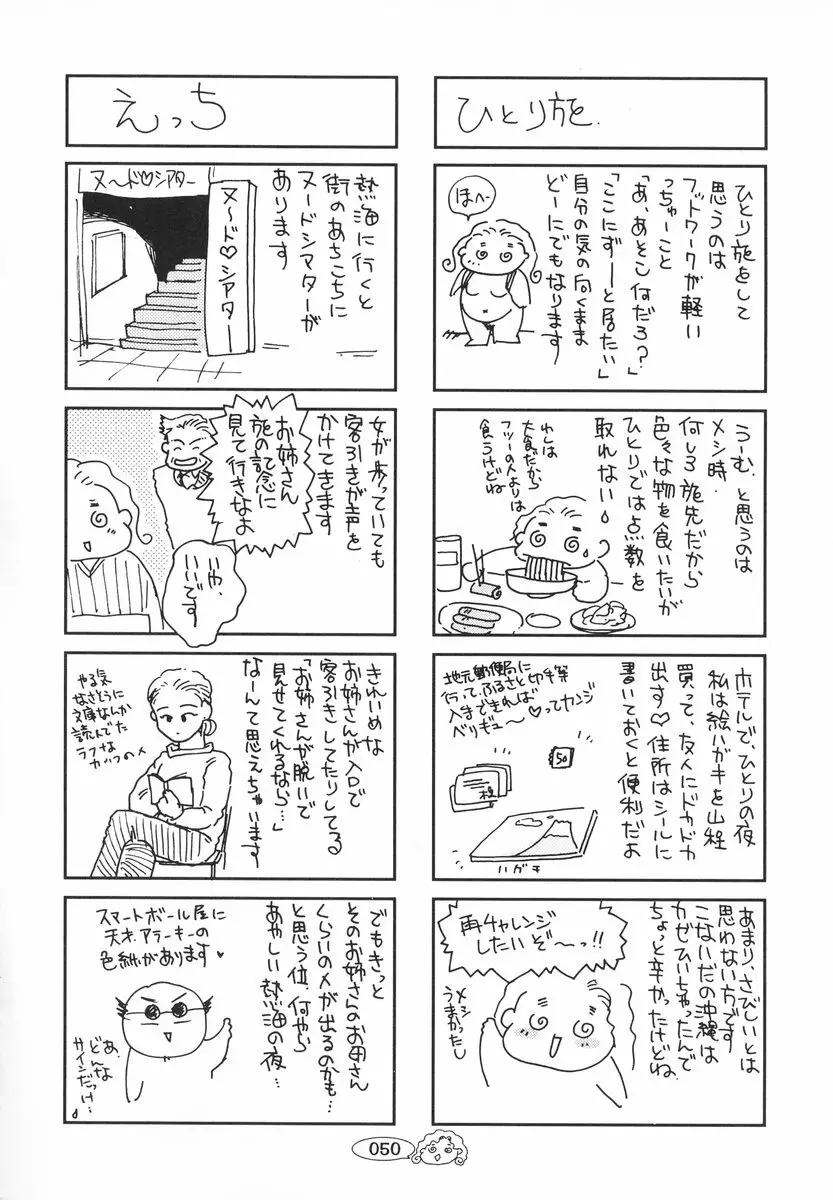 ひとり旅.
ひとり旅をして
思うのは
フットワークが軽い
っちゅーこと
「あ、あそこ何だろ?」
「ここにずーっと居たい」
自分の気の向くまま
どーにでもなります
ほへ〜
うーむ。と思うのは
メシ時.
何しろ旅先だから
色々な物を食いたいが
ひとりでは点数を
取れない
わしは
大食だから
フツーの人よりは
食うけどね
ホテルで、ひとりの夜
私は絵ハガキを山程
買って、友人にドカドカ
出す♡住所はシールに
書いておくと便利だよ
地元郵便局に
行って、ふるさと切手等
入手できれば
ベリギュー〜♡ってカンジ
50
ハガキ
あまり、さびしいとは
思わない方です
こないだの沖縄は
カゼひいちゃったんで
ちょっと辛かったけどね.
再チャレンジ
したいぞ〜っ!!
メシ
うまかったし
えっち
熱海に行くと
街のあちこちに
ヌードシアターが
あります
ヌ〜ド♡シアター
ヌ〜ド♡シアター
女が歩っていても
客引きが声を
かけてきます
お姉さん
旅の記念に
見て行きなよ
いや、
いいです
きれいめな
お姉さんが入口で
客引きしてたりしてる
「お姉さんが脱いで
見せてくれるなら…」
なーんて思えちゃいます
やる気
なさそうに
文庫なんか
読んでた
ラフな
カッコの人
でもきっと
そのお姉さんのお母さん
くらいの人が出るのかも…
と思う位、何やら
あやしい熱海の夜…
スマートボール屋に
天才アラーキーの
色紙があります♥
あ、
どんな
サインだっけ…
050